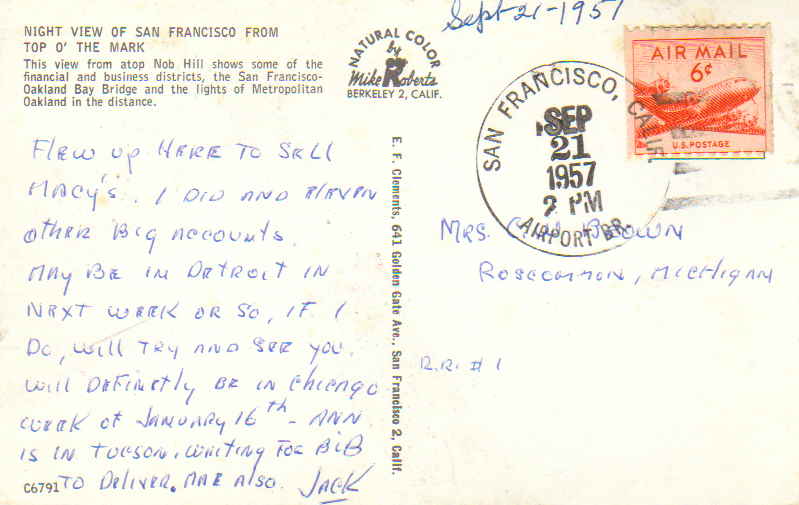 Sept-21-1957
NIGHT VIEW OF SAN FRANCISCO FROM
TOP O' THE MARK
This view from atop Nob Hill shows some of the
financial and business districts, the San Francisco-
Oakland Bay Bridge and the lights of Metropolitan
Oakland in the distance.
NATURAL COLOR
by
Mike Roberts
BERKELEY 2, CALIF.
AIR MAIL
6¢
U.S. POSTAGE
SAN FRANCISCO, CALIF.
SEP
21
1957
2 PM
AIRPORT BR.
Flew up Here To Sell
Macy's. I Did and Eleven
other Big accounts.
May Be in Detroit in
Next week or so, if I
Do, will Try and See you.
Will Definetly Be in Chicago
week of January 16th - Ann
is in Tucson. waiting For Bib
To Deliver. Mae also. Jack
C6791
E. F. Clements, 641 Golden Gate Ave., San Francisco 2, Calif.
Mrs. Brown
Roscommon, Michigan
R.R. # 1